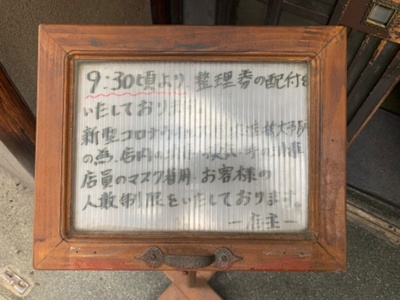 9:30頃より 整理券の配付を
いたしております
新型コロナ
の為、店内
店員のマスク着用 お客様の
人数制限をいたしております。
ー店主ー